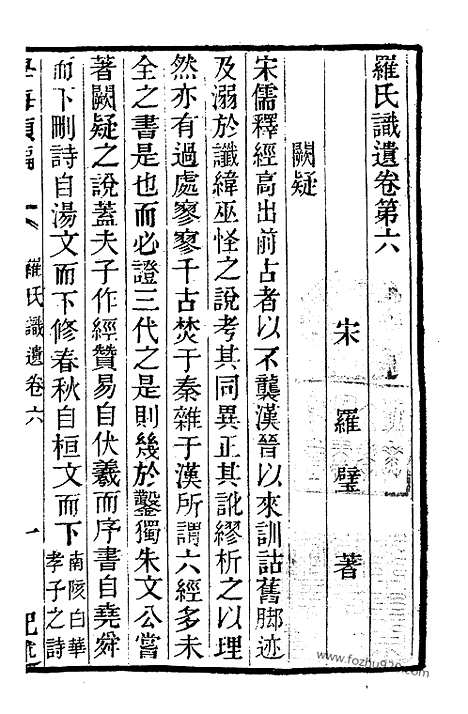 羅氏識遺卷第六
宋羅璧著
闕疑
宋儒釋經高出前古者以不襲漢晉以來訓詁舊脚迹
及溺於讖緯巫怪之說考其同異正其訛繆析之以理
然亦有過處寥寥千古焚于秦雜于漢所謂六經多未
全之書是也而必證三代之是則幾於鑿獨朱文公嘗
著闕疑之說蓋夫子作經贊易自伏羲而序書自堯舜
而下刪詩自湯文而下修春秋自桓文而下南陔白華
孝子之詩
學海類編
羅氏識遺卷六
一
www.fozhu920.com